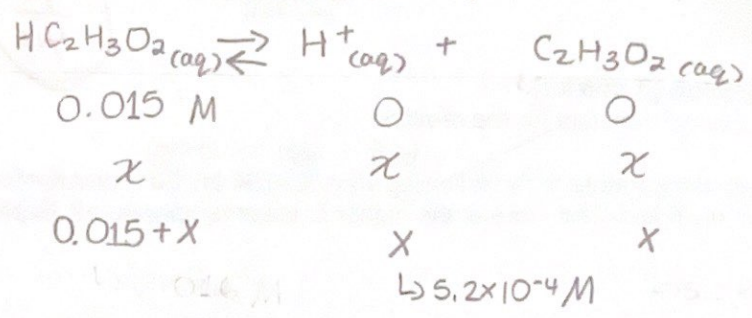 HC₂H₃O₂(aq) ⇌ H⁺(aq) + C₂H₃O₂(aq)
0.015 M 0 0
x x x
0.015+x x x
↳ 5.2×10⁻⁴ M